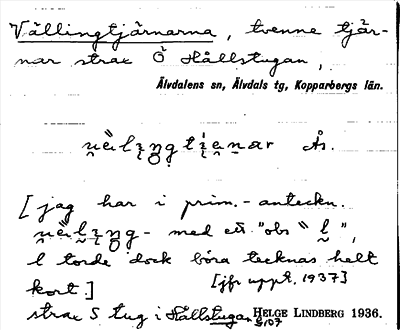 Vällingtjärnarna, tvenne tjär-
nar strax Ö Hållstugan,
Älvdalens sn, Älvdals tg, Kopparbergs län.
Ås.
[jag har i prim.-anteckn.
- med ett "obs l",
l torde dock böra tecknas helt
kort.] [jfr uppt. 1937]
strax S tug i Hållstugan
HELGE LINDBERG 1936.